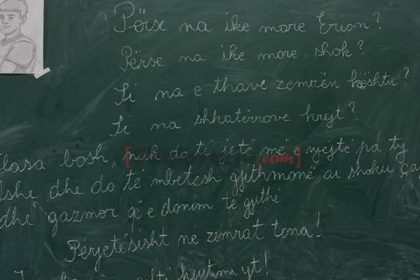 Përse na ike more Erion?
Përse na ike more shok?
Si na e thave zemrën kështu?
Si na shkatërrove krejt?
klasa bosh, nuk do të jetë më e njejtë pa ty
dhe do të mbetesh gjithmonë ai shoku
dhe gazmor që e donim të gjithë
Përjetësisht ne zemrat tona!
yt!
.com]